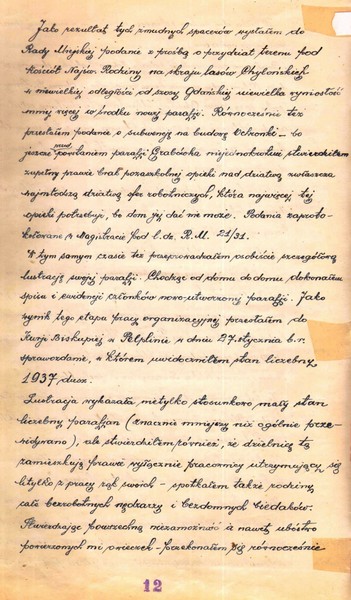 Jako rezultat tych żmudnych spacerów wysłałem do
Rady Miejskiej podanie z prośbą o przydział terenu pod
Kościół Najśw. Rodziny na skraju lasów Chylońskich
w niewielkiej odległości od szosy Gdańskiej niewielka wyniosłość
mniej więcej w środku nowej parafji. Równocześnie też
przesłałem podanie o subwencję na budowę Ochronki – bo
jeszcze przed powstaniem parafji Grabówka niejednokrotnie stwierdziłem
zupełny prawie brak pozaszkolnej opieki nad dziatwą zwłaszcza
najmłodszą dziatwą sfer robotniczych, która najwięcej tej
opieki potrzebuje, bo dom jej dać nie może. Podania zaproto-
kołowane w Magistracie pod l. dz. R.M. 21/31.
W tym samym czasie też przeprowadzałem osobiście szczegółową
lustrację swojej parafji. Chodząc od domu do domu dokonałem
spisu i ewidencji członków nowo-utworzonej parafji. Jako
wynik tego etapu pracy organizacyjnej przesłałem do
Kurji Biskupiej w Pelplinie w dniu 27. stycznia b. r.
sprawozdanie, w którem uwidoczniłem stan liczebny
1937 dusz.
Lustracja wykazała nietylko stosunkowo mały stan
liczebny parafjan (znacznie mniejszy niż ogólnie prze-
widywano), ale stwierdziłem również, że dzielnicę tą
zamieszkują prawie wyłącznie pracownicy utrzymujący się
li tylko z pracy rąk swoich – spotkałem także rodziny
całe bezrobotnych nędzarzy i bezdomnych biedaków.
Stwierdzając powszechną niezamożność a nawet ubóstwo
powierzonych mi owieczek – przekonałem się równocześnie
12